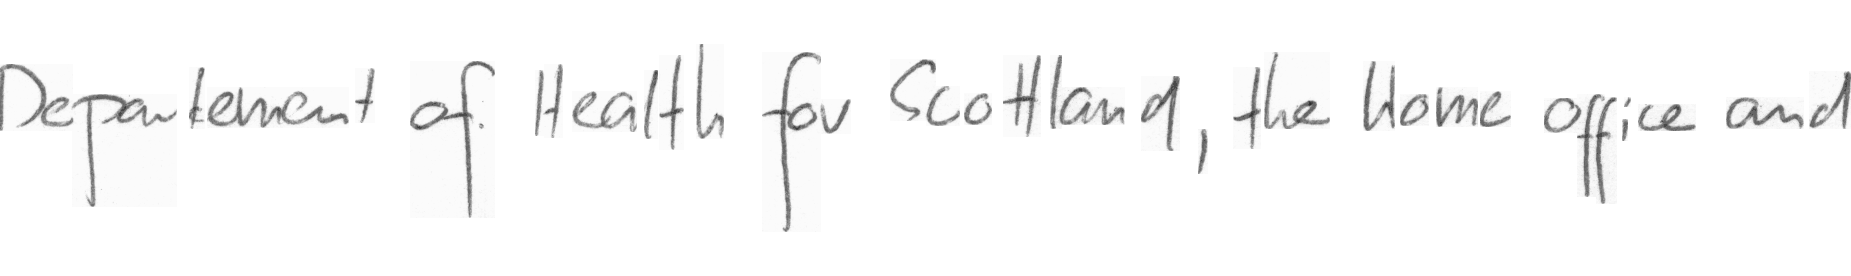 Departement of Health for Scotland, the Home office and